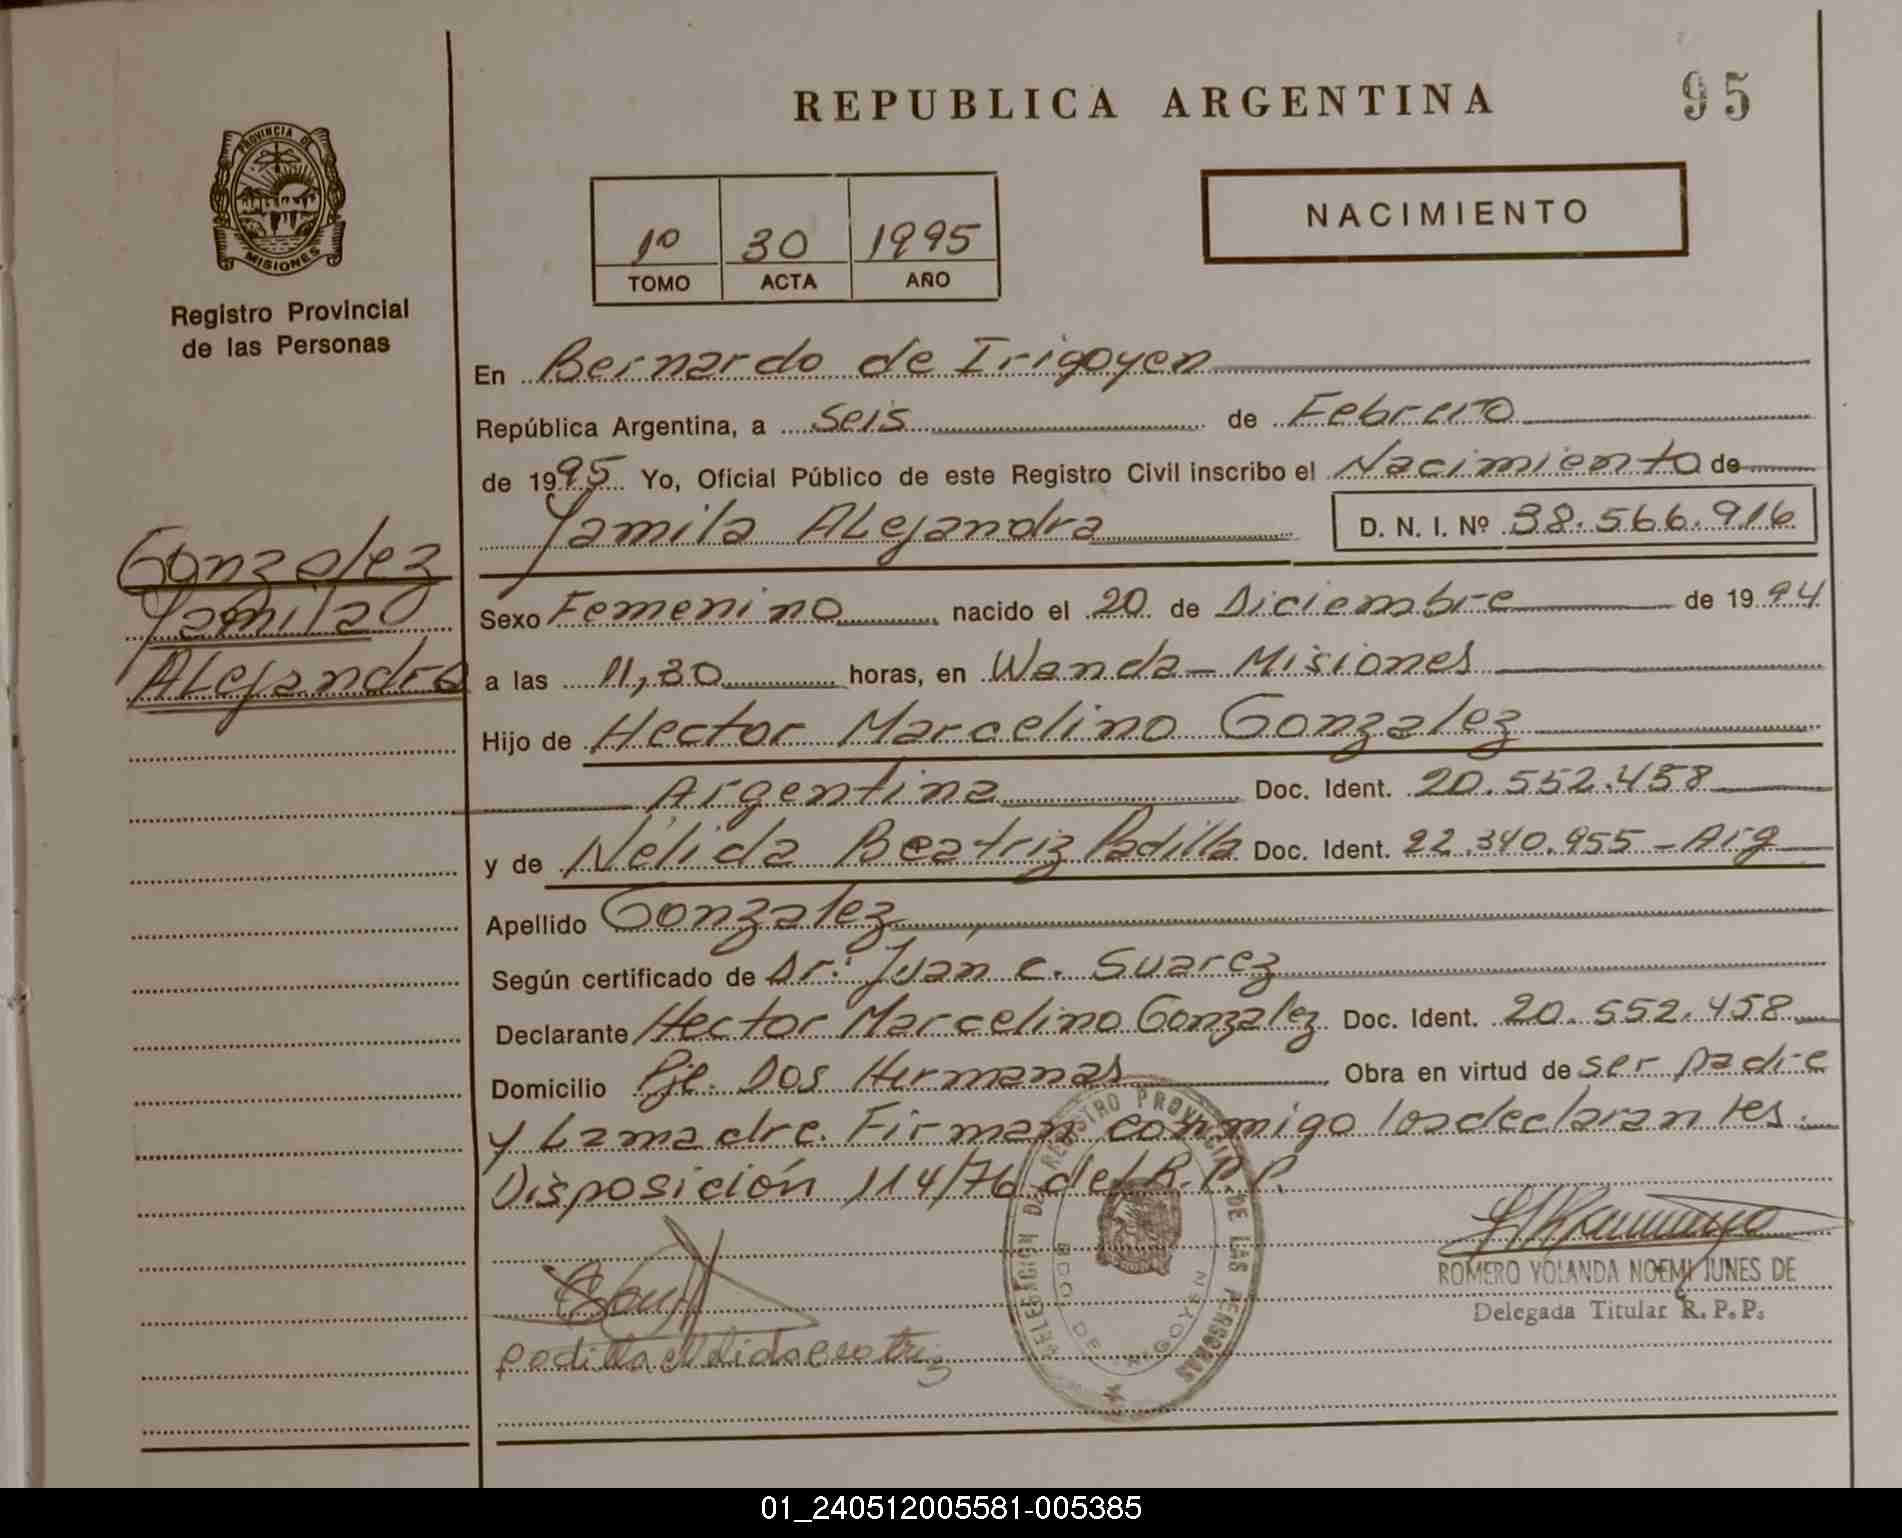 REPUBLICA ARGENTINA
95
PROVINCIA DE
MISIONES
Registro Provincial
de las Personas
1º 30 1995
TOMO ACTA AÑO
NACIMIENTO
En Bernardo de Irigoyen
República Argentina, a Seis de Febrero
de 1995 Yo, Oficial Público de este Registro Civil inscribo el Nacimiento de
Yamila Alejandra D. N. I. Nº 38.566.916
Gonzalez
Yamila
Alejandra
Sexo Femenino nacido el 20 de Diciembre de 1994
a las 11,30 horas, en Wanda - Misiones
Hijo de Hector Marcelino Gonzalez
Argentina Doc. Ident. 20.552.458
y de Nélida Beatriz Padilla Doc. Ident. 22.340.955 - Arg
Apellido Gonzalez
Según certificado de Dr: Juan C. Suarez
Declarante Hector Marcelino Gonzalez Doc. Ident. 20.552.458
Domicilio Pje. Dos Hermanas Obra en virtud de ser padre
y La madre. Firman conmigo los declarantes.
Disposición 114/76 del R.P.P.
DELEGACION DEL REGISTRO PROVINCIAL DE LAS PERSONAS
BDO. DE IRIGOYEN
ROMERO YOLANDA NOEMI IUNES DE
Delegada Titular R.P.P.
padilla Nelida Beatriz
01_240512005581-005385